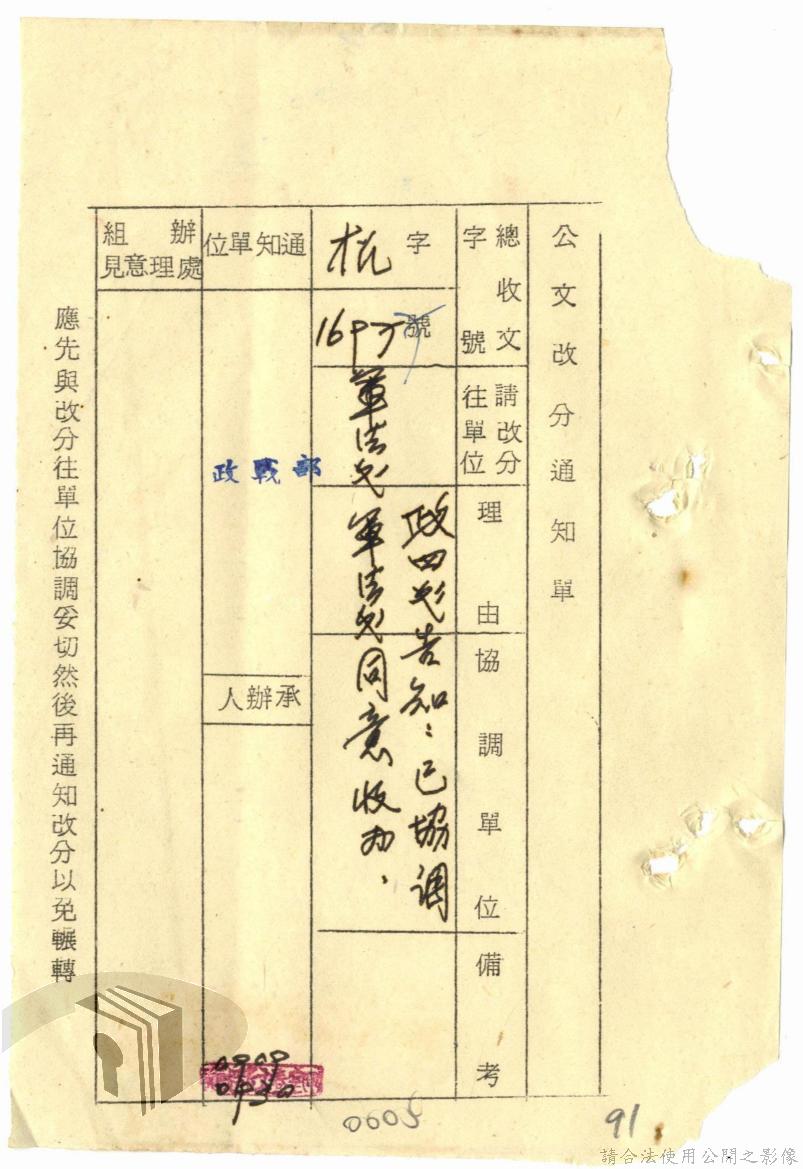 公文改分通知單
總收文字號
字
號
請改分往單位
軍法處
理由
政四處告知：已協調
軍法處同意收办、
協調單位
備考
通知單位
政戰部
承辦人
0909
0930
辦理意見
組處
應先與改分往單位協調妥切然後再通知改分以免輾轉
0005
91
請合法使用公開之影像